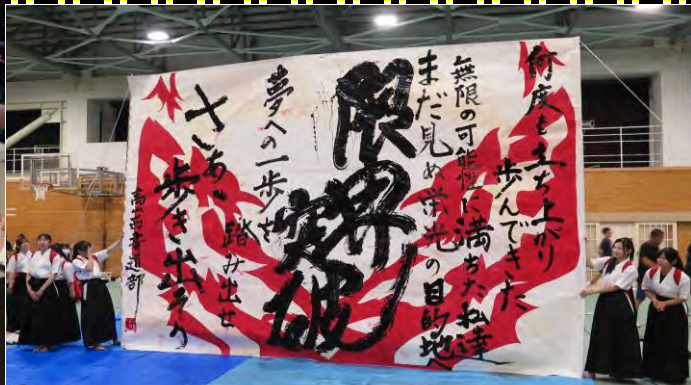 何度も立ち上がり
歩んできた
無限の可能性に満ちた私達
まだ見ぬ栄光の目的地へ
限界
突破
夢への一歩を
踏み出せ
さあ、
歩き出そう
高山西書道部